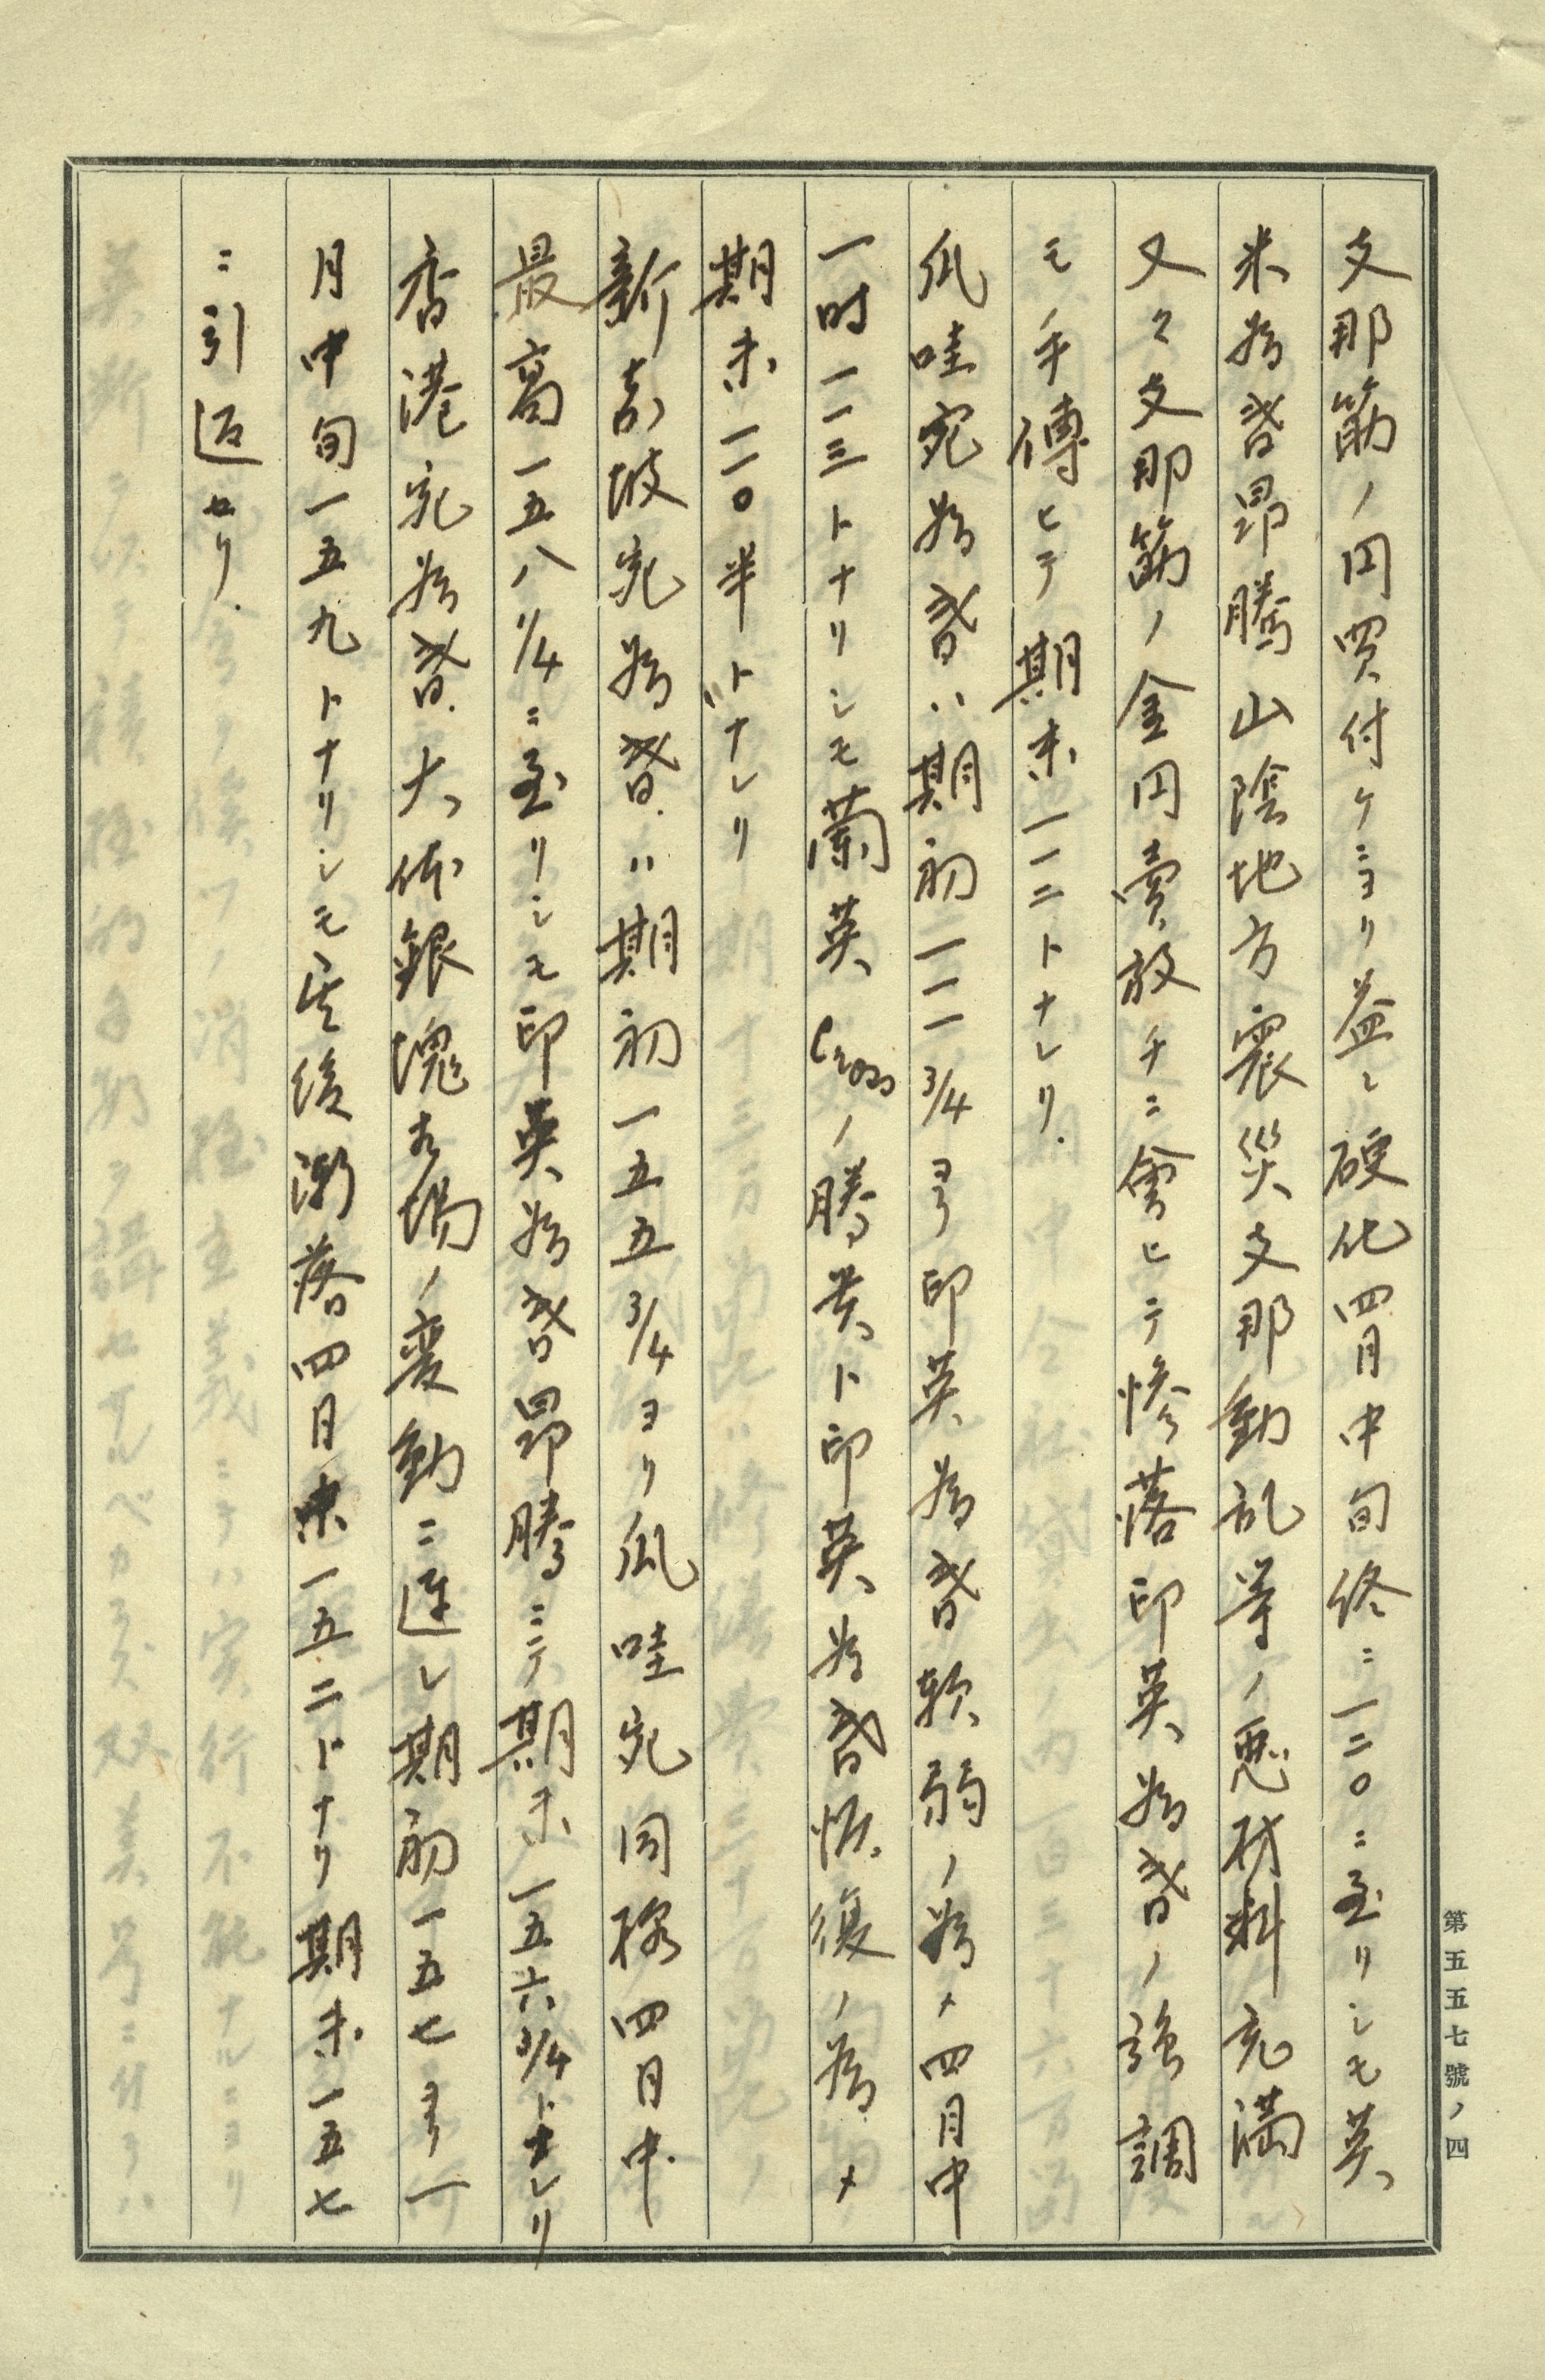 支那筋ノ円買付ケニヨリ益〻硬化四月中旬終ニ一二〇ニ至リシモ英
米為替昂騰山陰地方震災支那動乱等ノ悪材料充満
又々支那筋ノ金円売放チニ会ヒテ惨落印英為替ノ強調
モ手伝ヒテ期末一一二トナレリ.
瓜哇宛為替ハ期初一一一3/4ヨリ印英為替軟弱ノ為メ四月中
一時一一三トナリシモ蘭英Crossノ騰貴ト印英為替恢復ノ為メ
期末一一〇半トナレリ
新嘉坡宛為替ハ期初一五五3/4ヨリ瓜哇宛同様四月中
最高一五八1/4ニ至リシモ印英為替昂騰ニテ期末一五六3/4トナレリ
香港宛為替大体銀塊相場ノ変動ニ連レ期初一五七ヨリ一
月中旬一五九トナリシモ其後漸落四月末一五二トナリ期末一五七
ニ引返セリ.
第五五七號ノ四